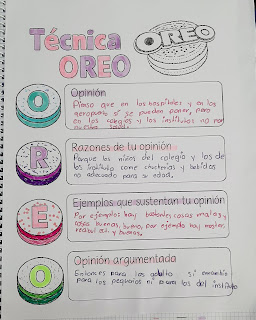 Técnica
OREO
OREO
O
Opinión
Pienso que en los hospitales y en los
aeropuerto si se pueden poner, pero
en los colegios y los institutos no por
nuestra salud.
R
Razones de tu opinión
Porque los niños del colegio y los de
los instituto come chucherias y bebidas
no adecuado para su edad.
E
Ejemplos que sustentan tu opinión
Por ejemplos hay bastantes cosas malas y
cosas buenas, bueno, por ejemplo hay
y buenas.
O
Opinión argumentada
Entonces para los adulto si
para los pequeños ni para los del instituto